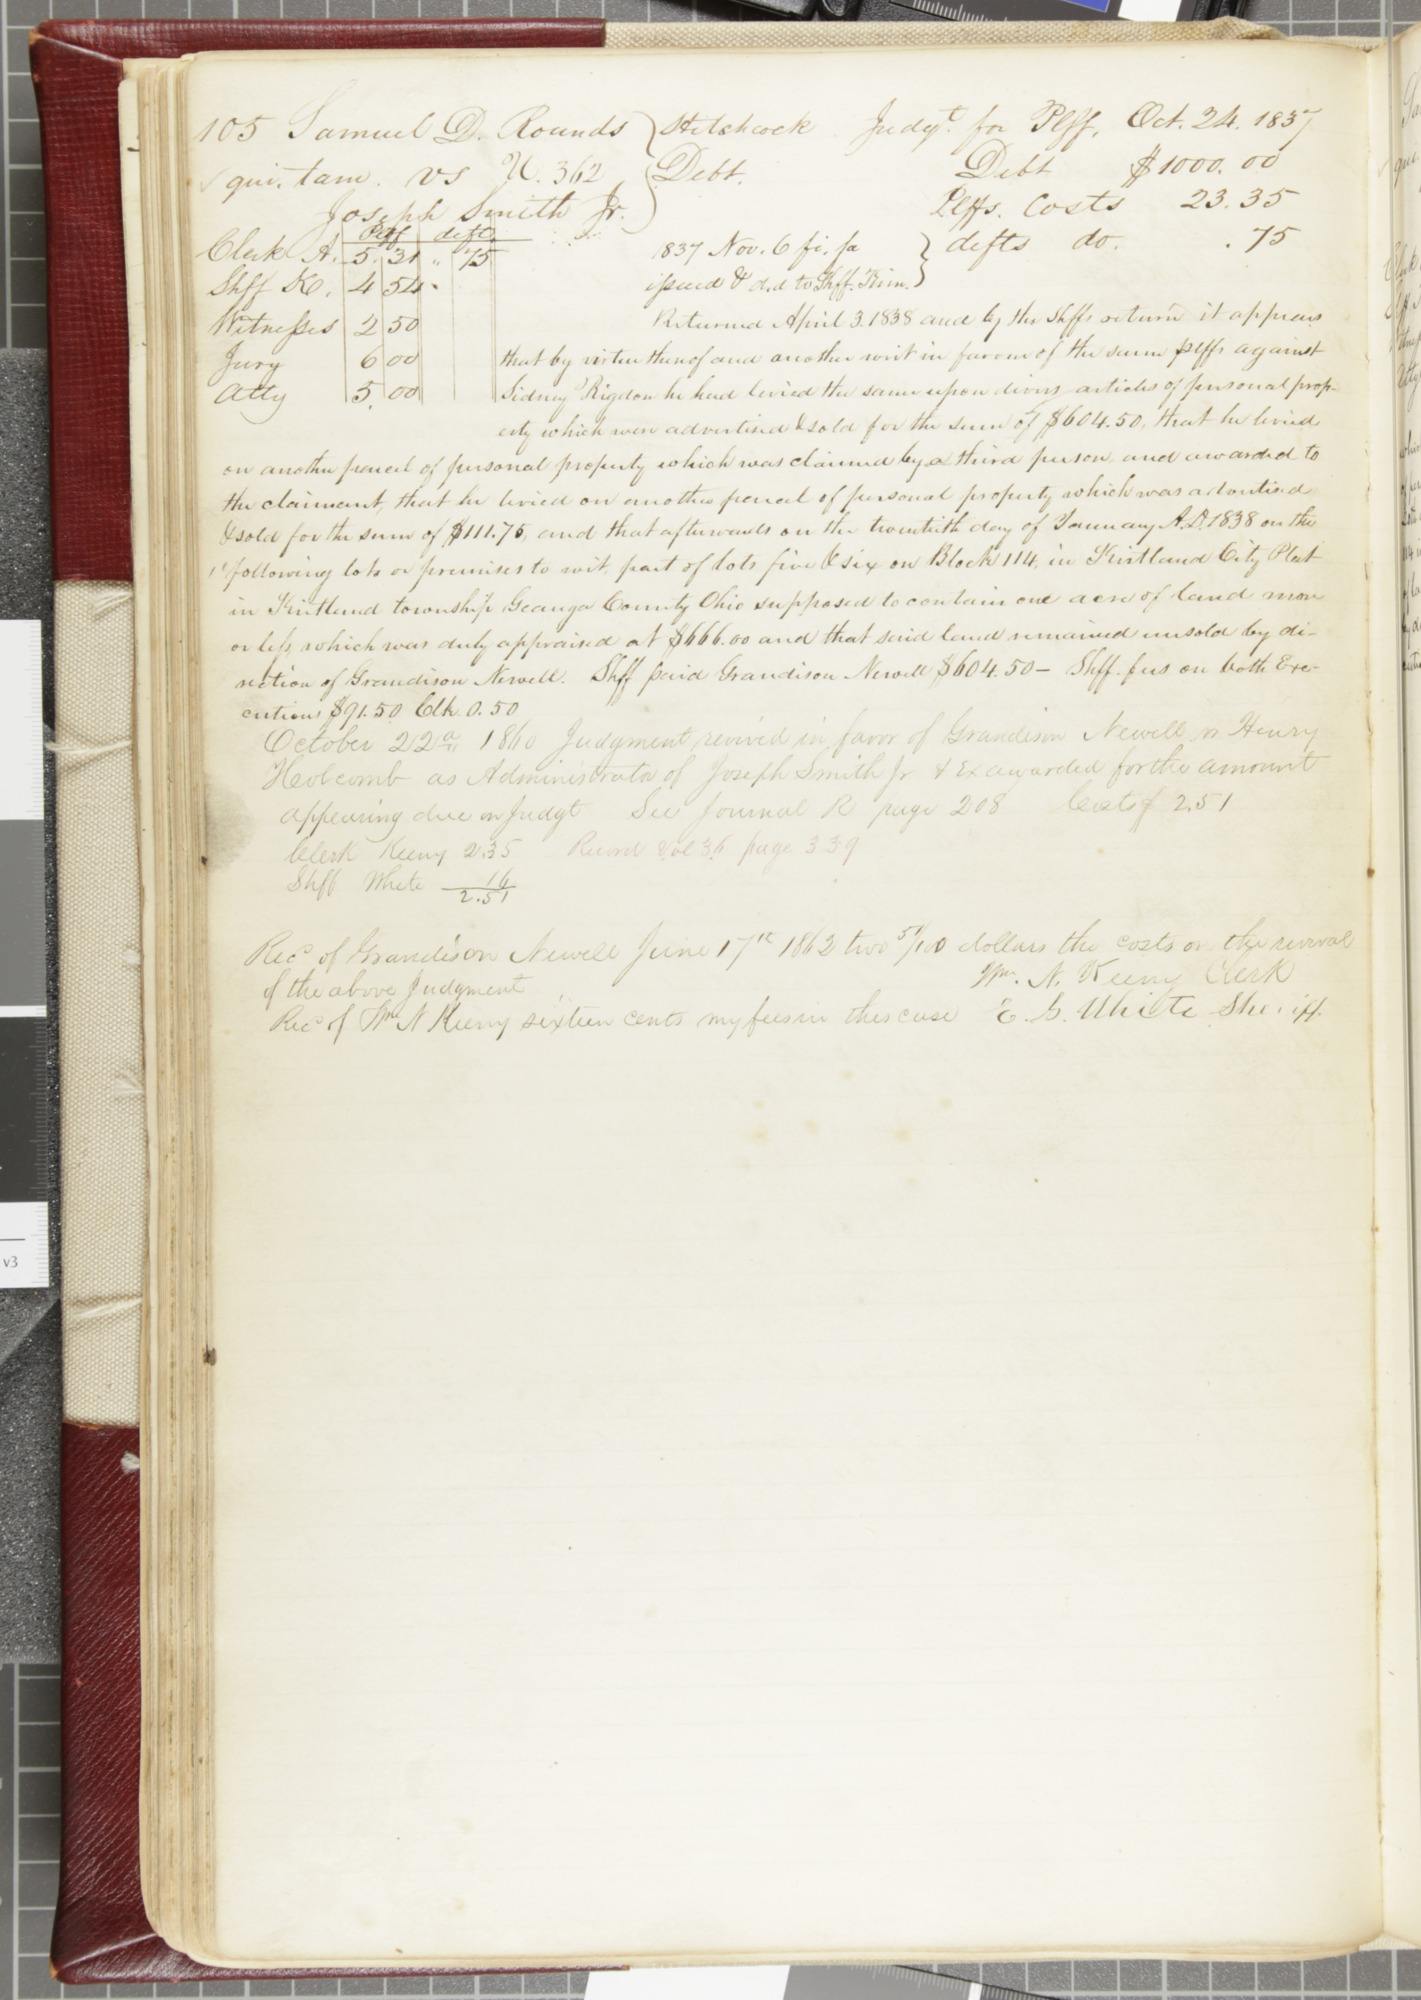 105 Samuel D. Rounds } Hitchcock Judgt. for Plff. Oct. 24. 1837
qui. tam. vs U. 362 } Debt. Debt $1000.00
Joseph Smith Jr. Plffs. Costs 23.35
Plff defts.
Clerk A. 5.31 " 75 1837 Nov. 6 fi. fa } defts do. .75
Shff K. 4 54 issued & d.d to Shff. Kim.
Witnesses 2 50 Returned April 3. 1838 and by the Shffs return it appears
Jury 6 00 that by virtue thereof and another writ in favour of the same plffs against
Atty 5.00 Sidney Rigdon he had levied the same upon divers articles of personal prop-
erty which were advertised & sold for the sum of $604.50, that he levied
on another parcel of personal property which was claimed by a third person, and awarded to
the claimant, that he levied on another parcel of personal property which was advertised
& sold for the sum of $111.75, and that afterwards on the twentieth day of January A.D. 1838 on the
following lots or premises to wit, part of lots five & six on Block 114, in Kirtland City Plat
in Kirtland township Geauga County Ohio supposed to contain one acre of land more
or less, which was duly appraised at $666.00 and that said land remained unsold by di-
rection of Grandison Newell. Shff paid Grandison Newell $604.50 – Shff. fees on both Exe-
cutions $91.50 Clk. 0.50
October 22d 1860 Judgment revived in favor of Grandison Newell vs Henry
Holcomb as Administrator of Joseph Smith Jr & Ex awarded for the amount
appearing due on Judgt See Journal R page 208 Costs 2.51
Clerk Keeny 2.35 Record Vol 36 page 339
Shff White 16
2.51
Recd of Grandison Newell June 17th 1862 two 51/100 dollars the costs on the revival
of the above Judgment Wm. N. Keeny Clerk
Recd of Wm N Keeny sixteen cents my fees in this case E. G. White Sheriff.
v3